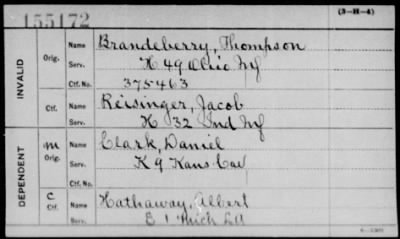 155172
(3-H-4)
INVALID
Orig.
Name Brandeberry, Thompson
Serv. H 49 Ohio Inf
Ctf. No. 375463
Ctf.
Name Reisinger, Jacob
Serv. H 32 Ind Inf
DEPENDENT
m
Orig.
Name Clark, Daniel
Serv. K 9 Kans Cav
Ctf. No.
C
Ctf.
Name Hathaway, Albert
Serv. 1 Mich LA